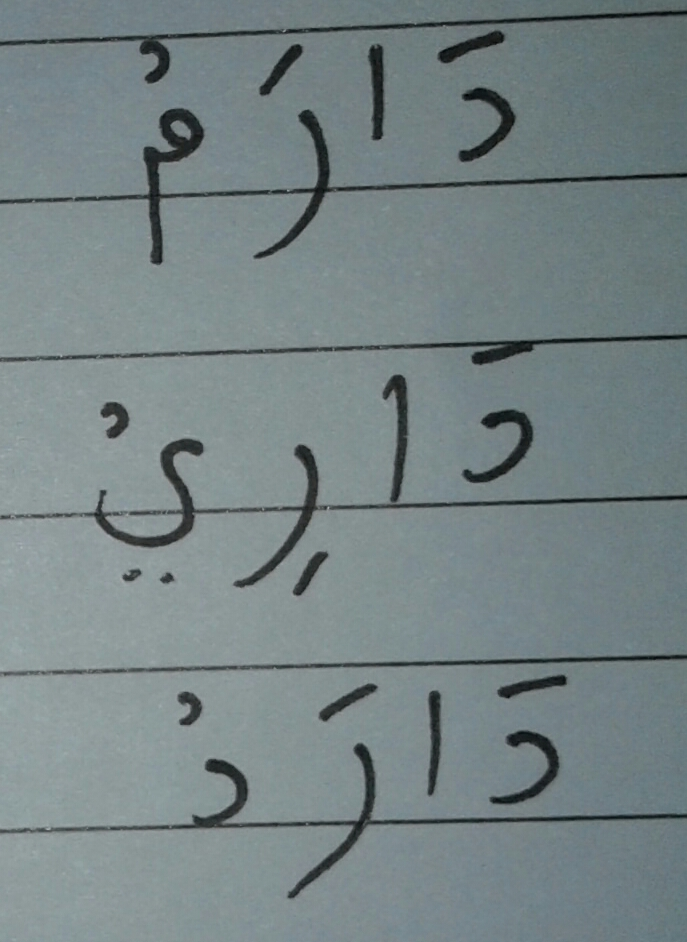 دَارَمْ
دَارِيْ
دَارَدْ